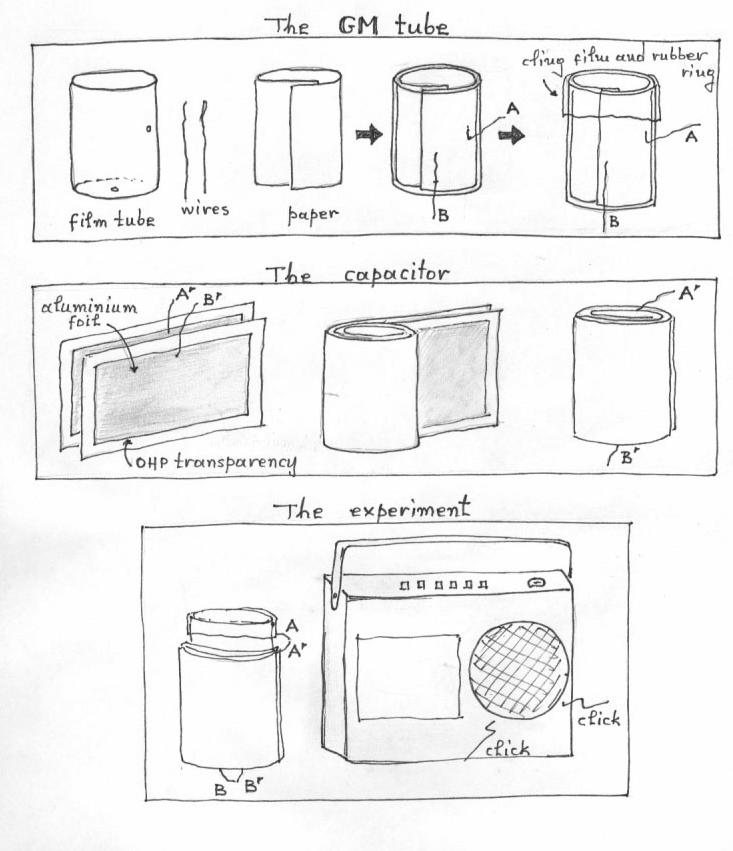 The GM tube
cling film and rubber
ring
A
A
film tube
wires
paper
B
B
The capacitor
aluminium
foil
A'
B'
A'
OHP transparency
B'
The experiment
A
A'
click
click
B B'